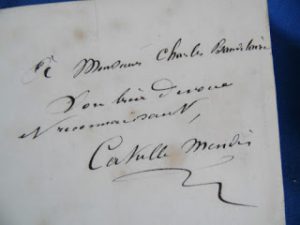 à Monsieur Charles Baudelaire
Son bien dévoué
et reconnaissant,
Catulle Mendès